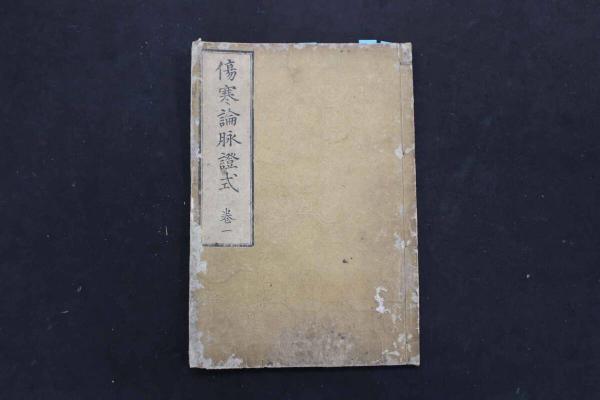 傷寒論脉證式 卷一